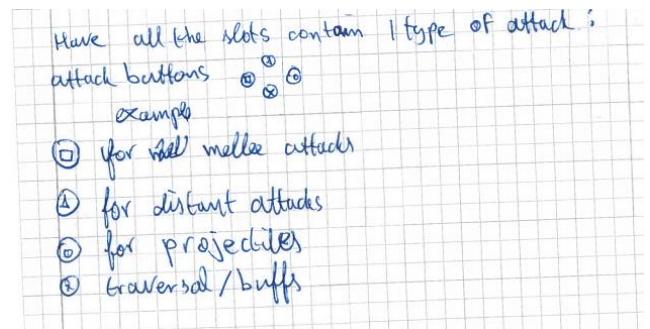 Have all the slots contain 1 type of attack:
attack buttons
example
for mellee attacks
for distant attacks
for projectiles
traversal/buffs